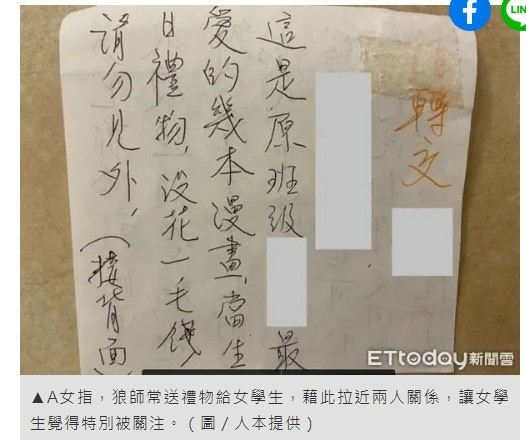 轉交
這是原班級 最
愛的幾本漫畫,當生
日禮物,沒花一毛錢
請勿見外,(接背面
ETtoday新聞雲
▲A女指，狼師常送禮物給女學生，藉此拉近兩人關係，讓女學
生覺得特別被關注。（圖／人本提供）